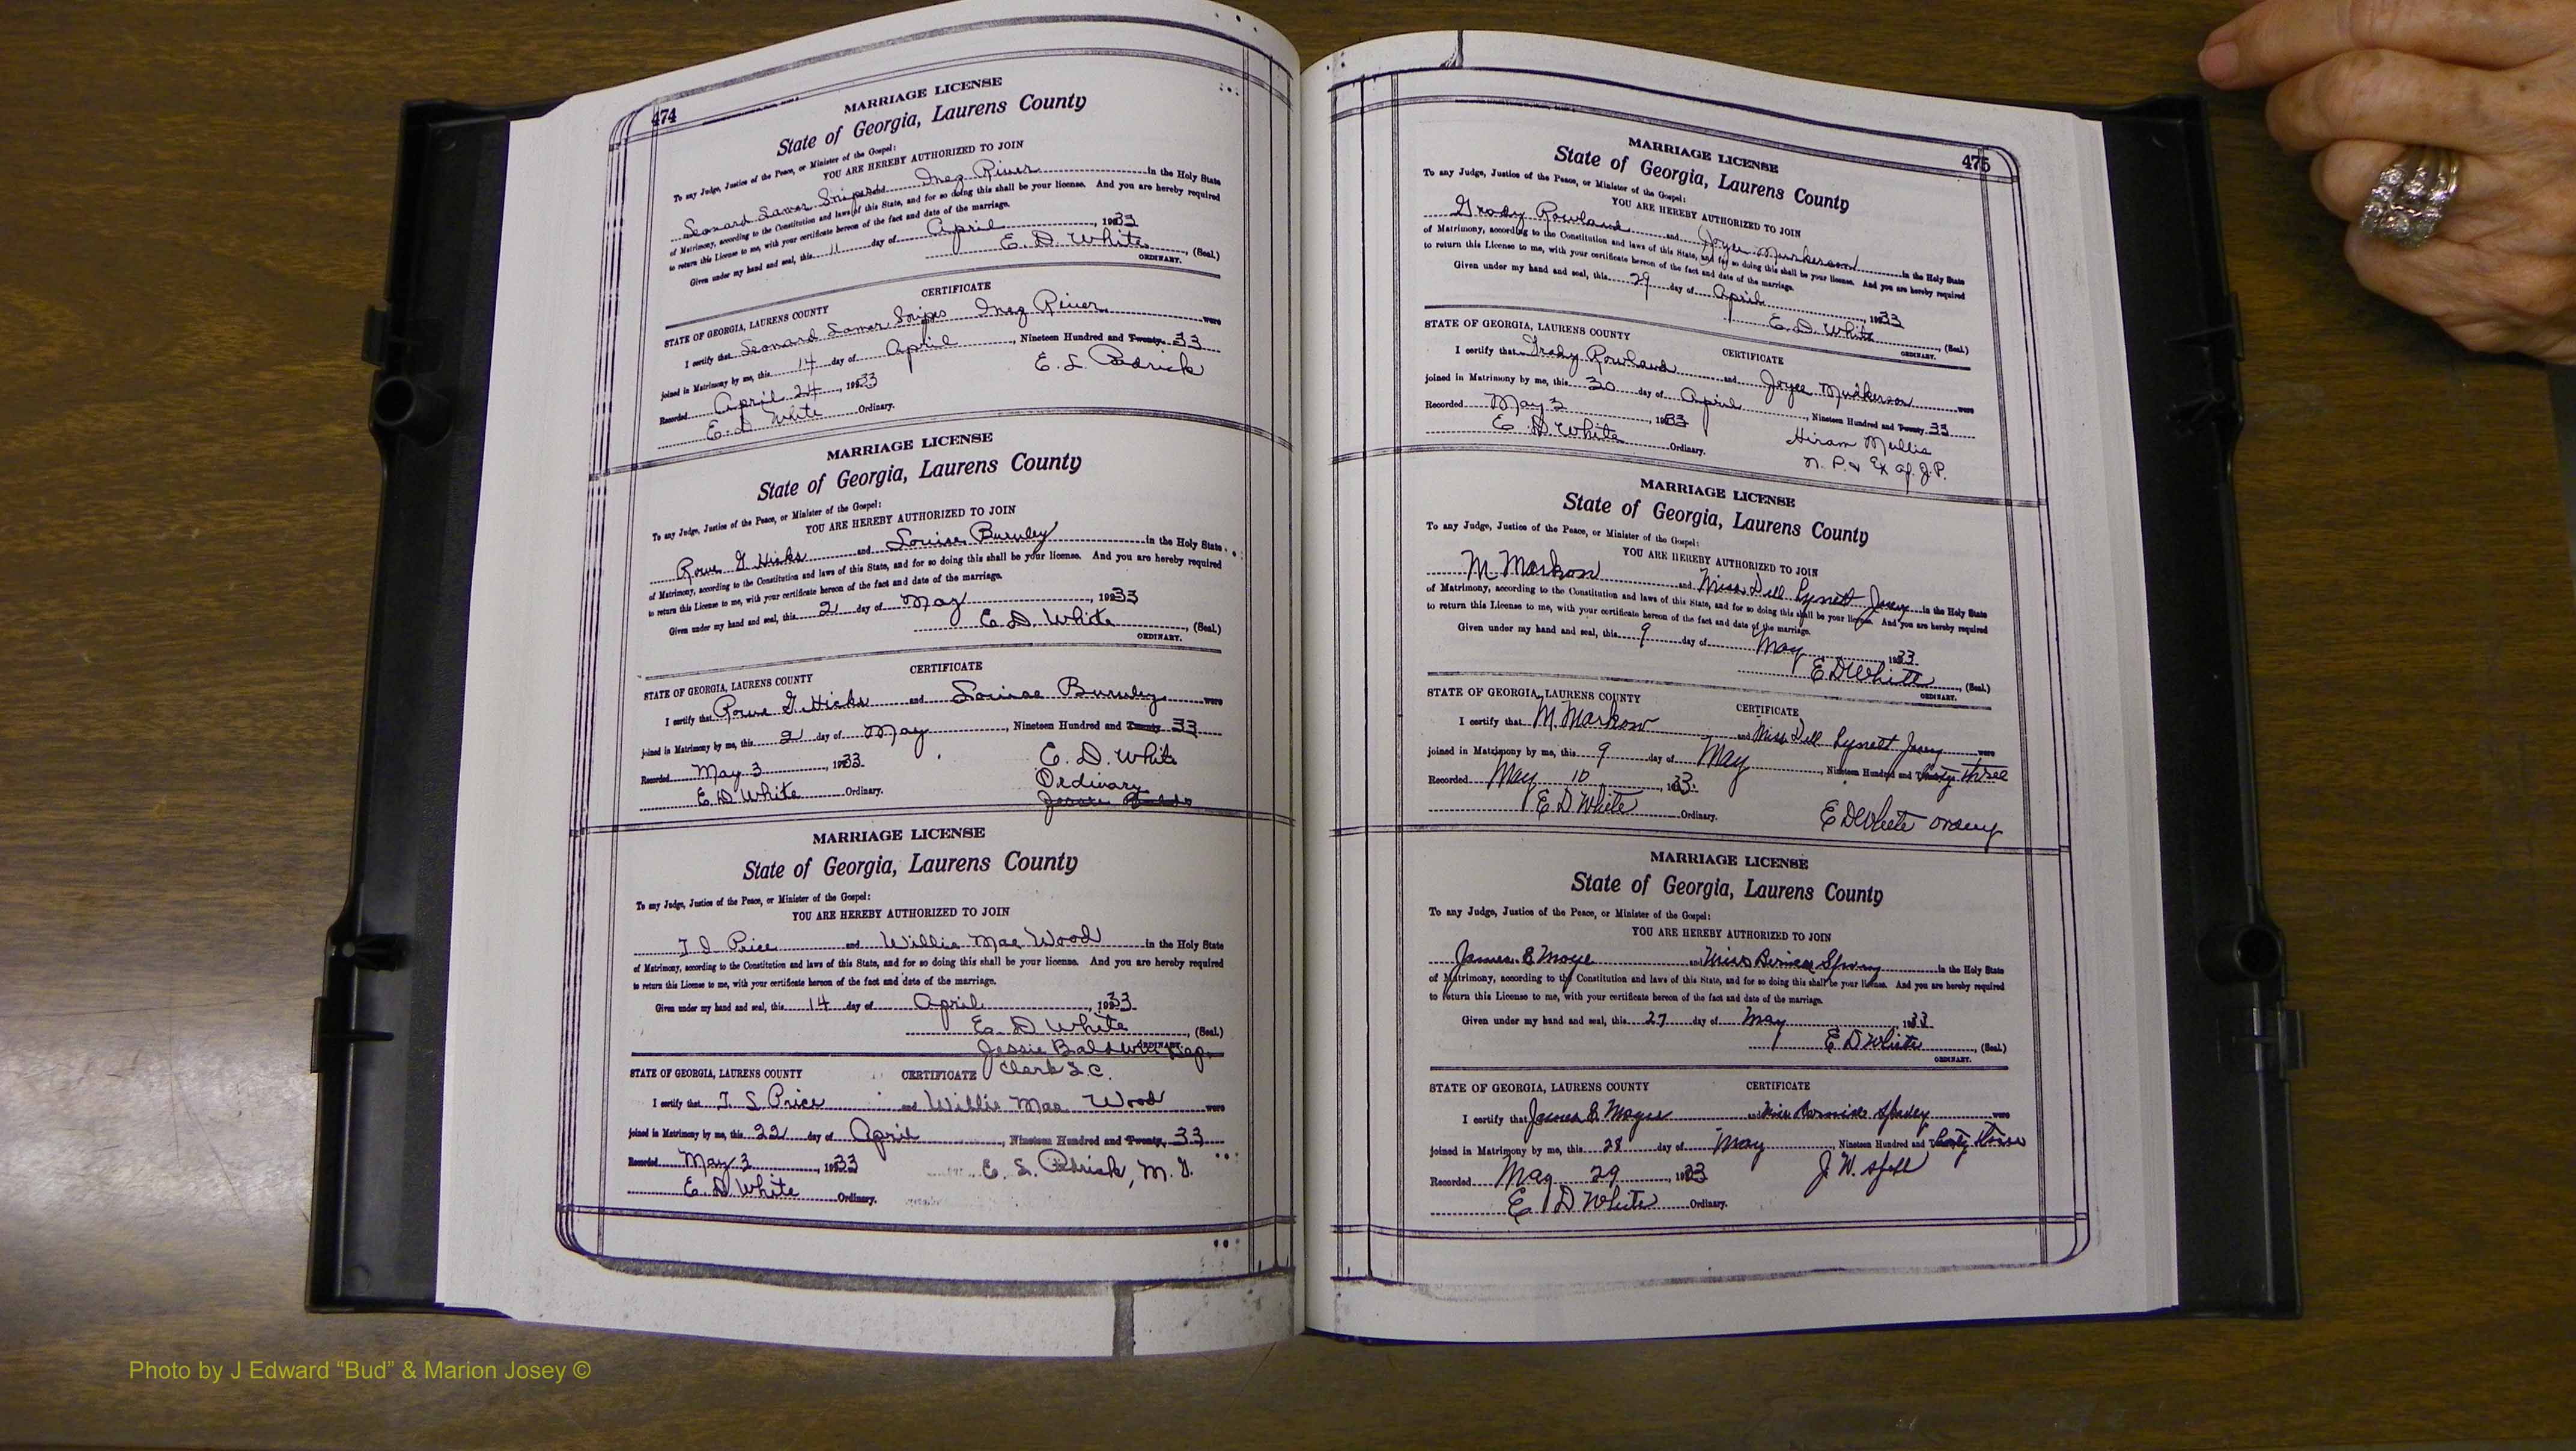 474
MARRIAGE LICENSE
State of Georgia, Laurens County
To any Judge, Justice of the Peace, or Minister of the Gospel:
YOU ARE HEREBY AUTHORIZED TO JOIN
Leonard Lamar Snipes and Inez River in the Holy State
of Matrimony, according to the Constitution and laws of this State, and for so doing this shall be your license. And you are hereby required
to return this License to me, with your certificate hereon of the fact and date of the marriage.
Given under my hand and seal, this 11 day of April, 1933
E. D. White, (Seal.)
ORDINARY.
CERTIFICATE
STATE OF GEORGIA, LAURENS COUNTY
I certify that Leonard Lamar Snipes Inez River were
joined in Matrimony by me, this 14 day of April, Nineteen Hundred and Twenty 33
Recorded April 24, 1933
E. L. Pedrick
E. D White Ordinary.
MARRIAGE LICENSE
State of Georgia, Laurens County
To any Judge, Justice of the Peace, or Minister of the Gospel:
YOU ARE HEREBY AUTHORIZED TO JOIN
Rowe G Hicks and Louise Burnley in the Holy State
of Matrimony, according to the Constitution and laws of this State, and for so doing this shall be your license. And you are hereby required
to return this License to me, with your certificate hereon of the fact and date of the marriage.
Given under my hand and seal, this 2 day of May, 1933
E. D. White, (Seal.)
ORDINARY.
CERTIFICATE
STATE OF GEORGIA, LAURENS COUNTY
I certify that Rowe G Hicks and Louise Burnley were
joined in Matrimony by me, this 2 day of May, Nineteen Hundred and Twenty 33
Recorded May 3, 1933.
E. D. White
Ordinary
E. D White Ordinary.
MARRIAGE LICENSE
State of Georgia, Laurens County
To any Judge, Justice of the Peace, or Minister of the Gospel:
YOU ARE HEREBY AUTHORIZED TO JOIN
Price and Willie Mae Wood in the Holy State
of Matrimony, according to the Constitution and laws of this State, and for so doing this shall be your license. And you are hereby required
to return this License to me, with your certificate hereon of the fact and date of the marriage.
Given under my hand and seal, this 14 day of April, 1933
E. D White, (Seal.)
ORDINARY.
Jessie Baldwin Dep.
Clerk S. C.
STATE OF GEORGIA, LAURENS COUNTY CERTIFICATE
I certify that Price and Willie Mae Wood were
joined in Matrimony by me, this 22 day of April, Nineteen Hundred and Twenty, 33
Recorded May 3, 1933
E. L. Pedrick, M. G.
E. D. White Ordinary.
475
MARRIAGE LICENSE
State of Georgia, Laurens County
To any Judge, Justice of the Peace, or Minister of the Gospel:
YOU ARE HEREBY AUTHORIZED TO JOIN
Grady Rowland and Joyce Murkerson in the Holy State
of Matrimony, according to the Constitution and laws of this State, and for so doing this shall be your license. And you are hereby required
to return this License to me, with your certificate hereon of the fact and date of the marriage.
Given under my hand and seal, this 29 day of April, 1933
E. D. White, (Seal.)
ORDINARY.
STATE OF GEORGIA, LAURENS COUNTY CERTIFICATE
I certify that Grady Rowland and Joyce Mudkerson were
joined in Matrimony by me, this 30 day of April, Nineteen Hundred and Twenty 33
Recorded May 3, 1933
Hiram Mullis
E. D. White Ordinary.
N. P. & Ex of. J. P.
MARRIAGE LICENSE
State of Georgia, Laurens County
To any Judge, Justice of the Peace, or Minister of the Gospel:
YOU ARE HEREBY AUTHORIZED TO JOIN
M Markow and Miss Dell Lynett Josey in the Holy State
of Matrimony, according to the Constitution and laws of this State, and for so doing this shall be your license. And you are hereby required
to return this License to me, with your certificate hereon of the fact and date of the marriage.
Given under my hand and seal, this 9 day of May, 1933
E D White, (Seal.)
ORDINARY.
STATE OF GEORGIA, LAURENS COUNTY CERTIFICATE
I certify that M. Markow and Miss Dell Lynett Josey were
joined in Matrimony by me, this 9 day of May, Nineteen Hundred and Thirty three
Recorded May 10, 1933.
E D White Ordinary.
E D White
MARRIAGE LICENSE
State of Georgia, Laurens County
To any Judge, Justice of the Peace, or Minister of the Gospel:
YOU ARE HEREBY AUTHORIZED TO JOIN
James E Moye and Miss Bernice Spivey in the Holy State
of Matrimony, according to the Constitution and laws of this State, and for so doing this shall be your license. And you are hereby required
to return this License to me, with your certificate hereon of the fact and date of the marriage.
Given under my hand and seal, this 27 day of May, 1933
E D White, (Seal.)
ORDINARY.
STATE OF GEORGIA, LAURENS COUNTY CERTIFICATE
I certify that James E Moye and Miss Bernice Spivey were
joined in Matrimony by me, this 28 day of May, Nineteen Hundred and Thirty three
Recorded May 29, 1933
J. W. Spell
E D White Ordinary.
Photo by J Edward “Bud” & Marion Josey ©